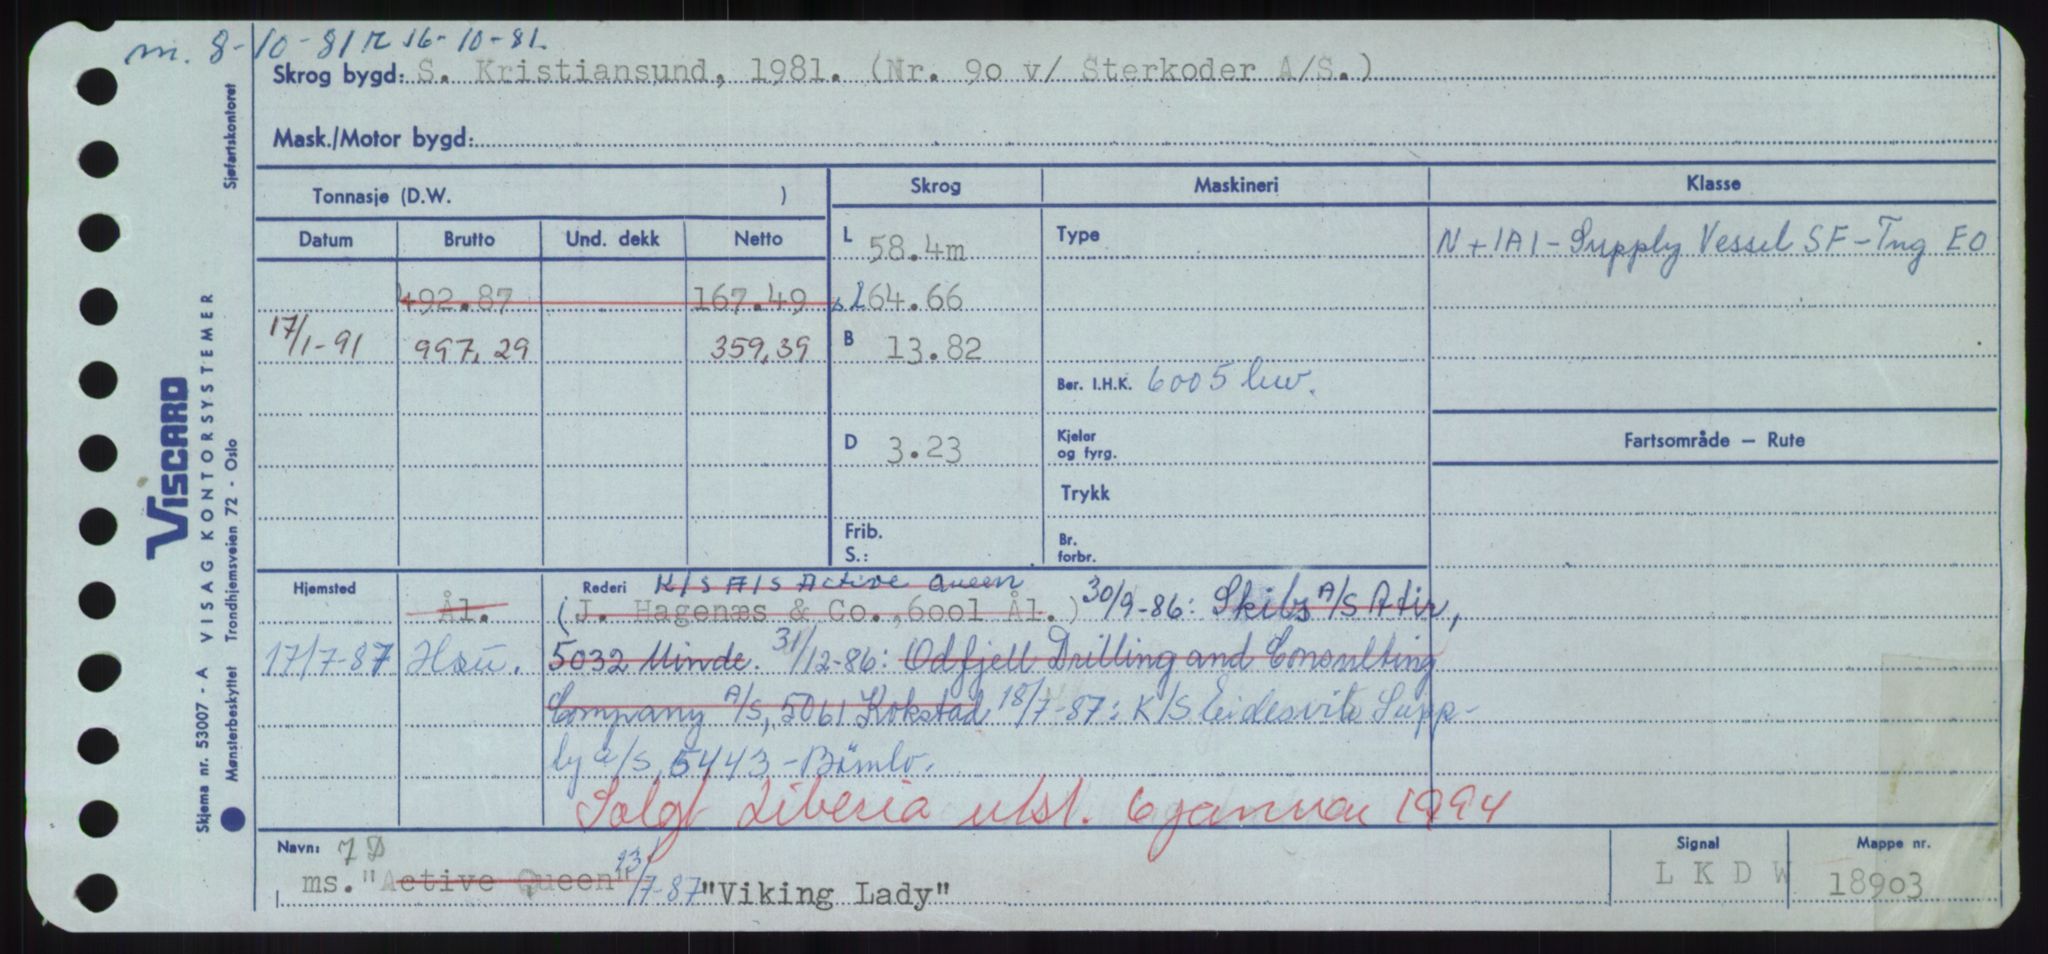 m. 8-10-81 R 16-10-81.
Skrog bygd: S. Kristiansund, 1981. (Nr. 90 v/ Sterkoder A/S.)
Mask./Motor bygd:
Tonnasje (D.W. )
Skrog Maskineri Klasse
Datum Brutto Und. dekk Netto
L 58.4m Type N+1A1-Supply Vessel SF-Tug EO
492.87 167.49 L64.66
17/1-91 997,29 359,39 B 13.82
Ber. I.H.K. 6005 kw.
D 3.23 Kjeler og fyrg. Fartsområde — Rute
Trykk
Frib.
S.: Br. forbr.
Hjemsted Rederi K/S A/S Active Queen
Ål. (J. Hagenæs & Co., 6001 Ål.) 30/9-86: Skibs A/S Atir,
17/7-87 Hau. 5032 Minde. 31/12-86: Odfjell Drilling and Consulting
Company A/S, 5061 Kokstad 18/7-87: K/S Eidesvik Supp-
ly a/s, 5443-Bömlo.
Solgt Liberia utst. 6 januar 1994
Navn: 7D Signal Mappe nr.
ms. "Active Queen" 13/7-87 "Viking Lady" L K D W 18903
Viscard
VISAG KONTORSYSTEMER
Skjema nr. 53007 - A
Mønsterbeskyttet Trondhjemsveien 72 - Oslo
Sjøfartskontoret